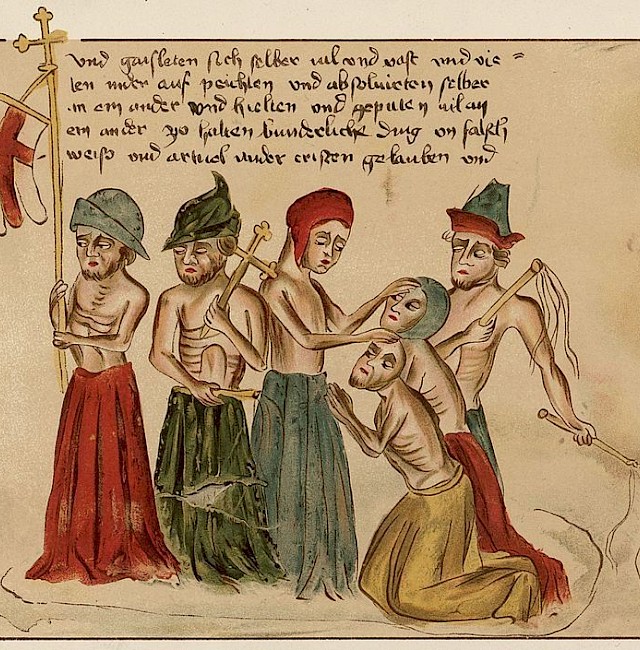 vnd gaisleten sich selber vnd vast vnd vie=
len nider auf peichten vnd absoluirten selber
ein ander vnd hielten vnd geputen
ein ander zo halten bunderliche ding vn falsch
weiss vnd artucl wider cristen gelauben vnd